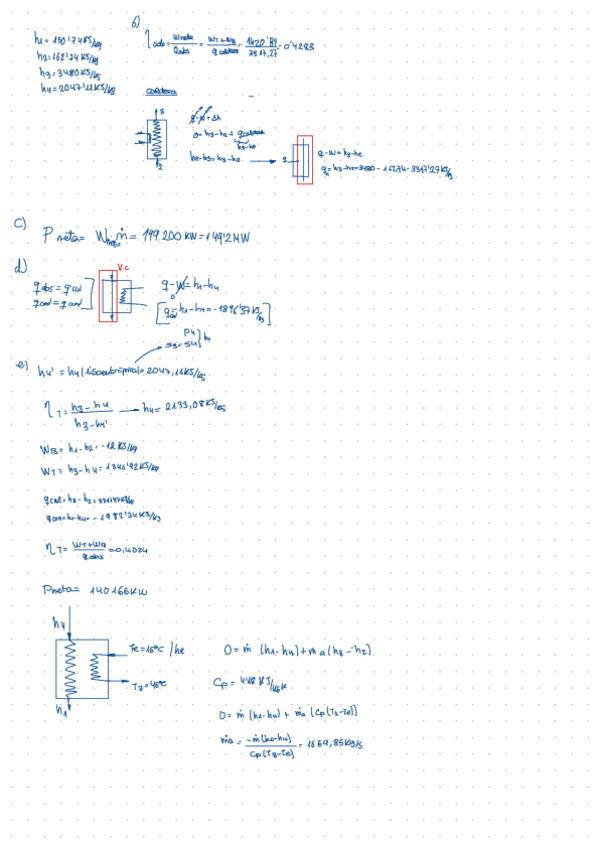 b)
h1 = 150'74 KJ/kg
h2 = 162'74 KJ/kg
h3 = 3480 KJ/kg
h4 = 2047'11 KJ/kg
η ciclo = Wneta/qabs = WT+WB/qcaldera = 1420'89/3317,27 = 0'4283
caldera
3
q-w = Δh
0 = h3-h2 +
2
q-w = h3-h2
= h3-h2 = 3480 - 162'74 = 3317'27 KJ/kg
c) Pneta = Wneto ṁ = 149.200 KW = 149'2 MW
d)
V.C
qabs = qcal
qced = qcond
q-w = h1-h4
0
qced = h1-h4 = -1896'37 KJ/kg
P4
s3 = s4
h4
e) h4' = h4 (isoentrópica) = 2047,11 KJ/kg
ηT = h3-h4/h3-h4' → h4 = 2133,08 KJ/kg
WB = h1-h2 = -12 KJ/kg
WT = h3-h4 = 1346'92 KJ/kg
qcal = h3-h2 = 3317'27 KJ/kg
qcon = h1-h4 = -1982'34 KJ/kg
ηT = WT+WB/qabs = 0,4024
Pneta = 140166 KW
h4
Te = 15°C / he
Ts = 45°C
h1
0 = ṁ (h1-h4) + ṁa (hs-he)
Cp = 4,18 KJ/kgK
0 = ṁ (h1-h4) + ṁa (Cp(Ts-Te))
ṁa = -ṁ(h1-h4)/Cp(Ts-Te) = 1659,85 kg/s